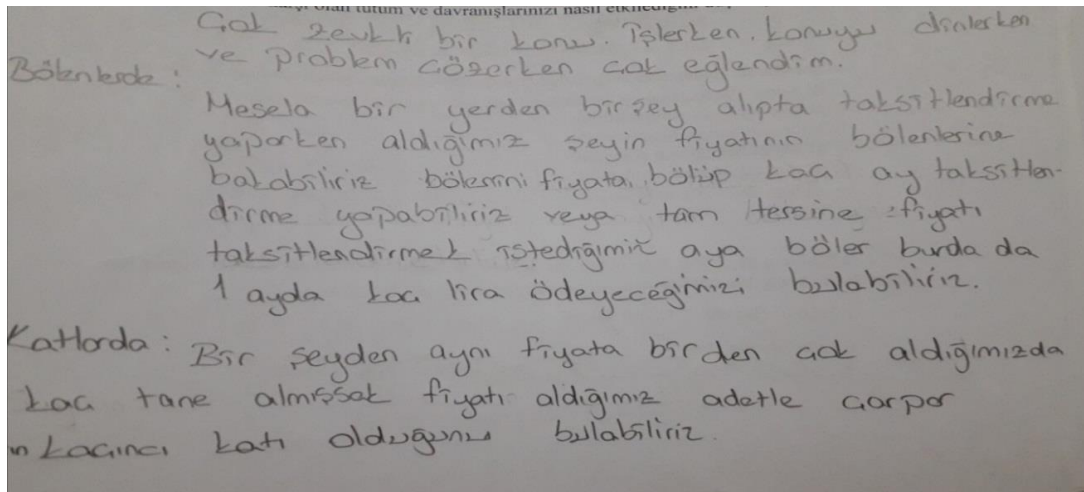 olan tutum ve davranışlarınızı nasıl etkilediğini
Çok zevkli bir konu. İşlerken, konuyu dinlerken
ve problem çözerken çok eğlendim.
Bölenlerde :
Mesela bir yerden birşey alıpta taksitlendirme
yaparken aldığımız şeyin fiyatının bölenlerine
bakabiliriz bölenini fiyata, bölüp kaç ay taksitlen-
dirme yapabiliriz veya tam tersine fiyatı
taksitlendirmek istediğimiz aya böler burda da
1 ayda kaç lira ödeyeceğimizi bulabiliriz.
Katlarda : Bir şeyden aynı fiyata birden çok aldığımızda
kaç tane almışsak fiyatı aldığımız adetle çarpar
ın kaçıncı katı olduğunu bulabiliriz.